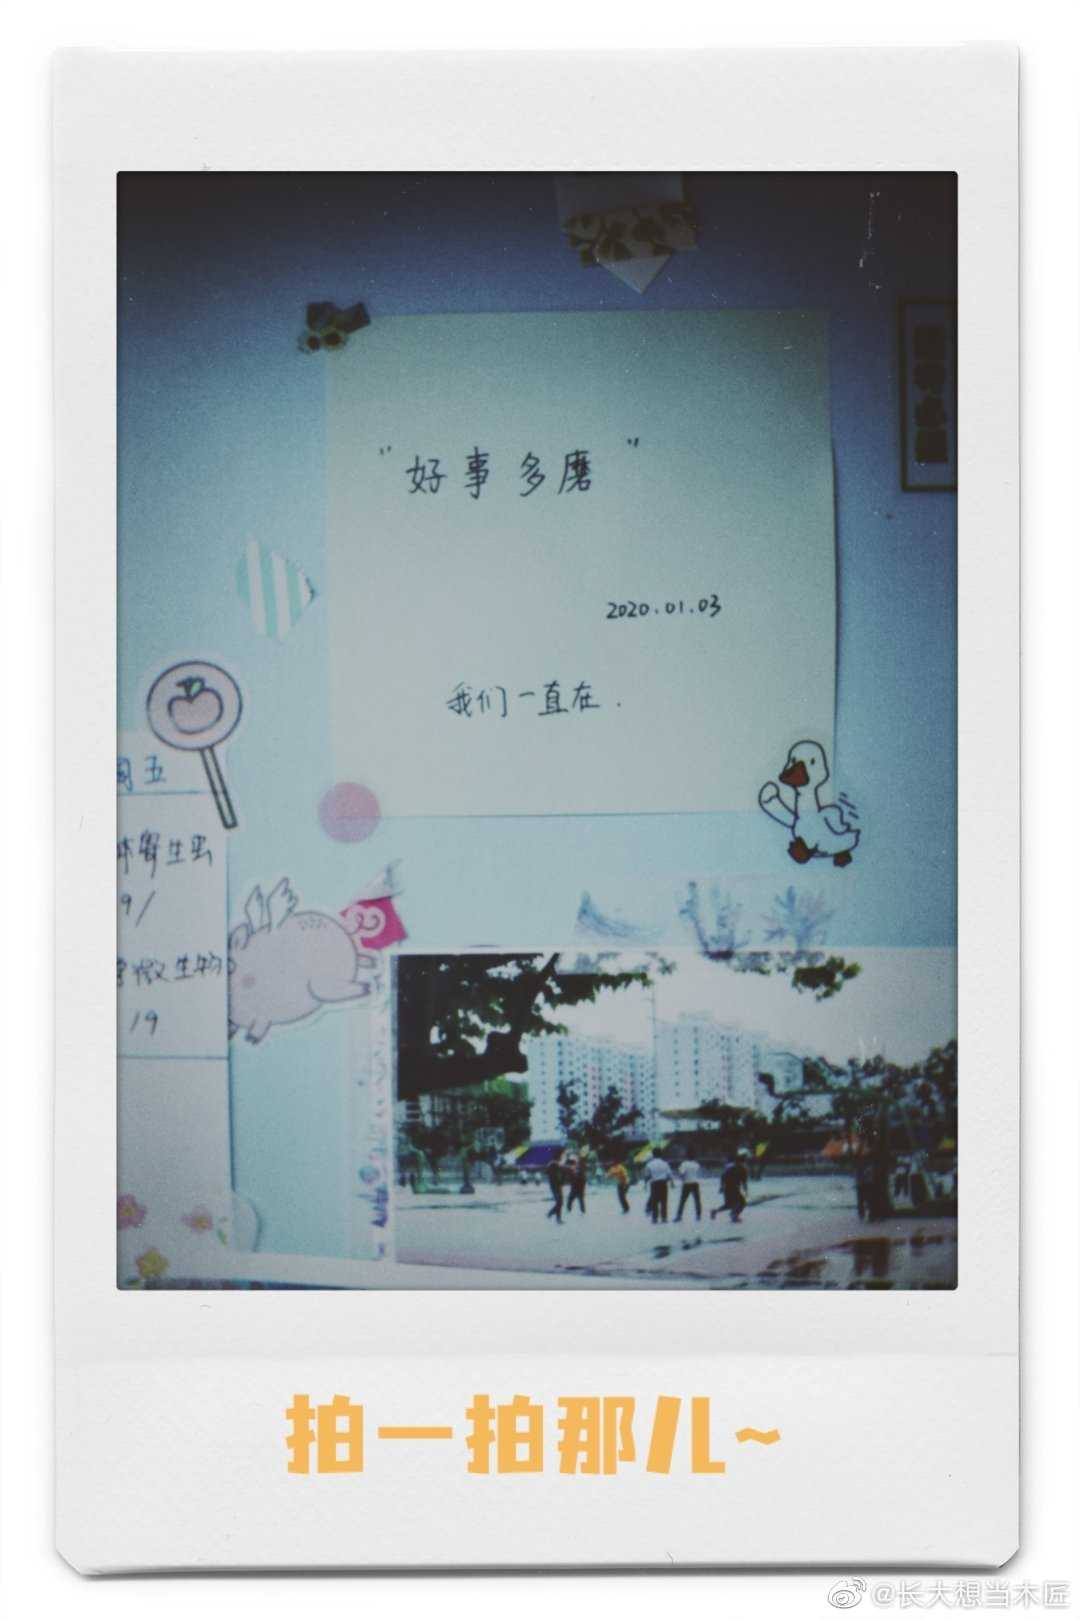 "好事多磨"
2020.01.03
我们一直在.
周五
体寄生虫
9/
微生物
19
拍一拍那儿~
@长大想当木匠